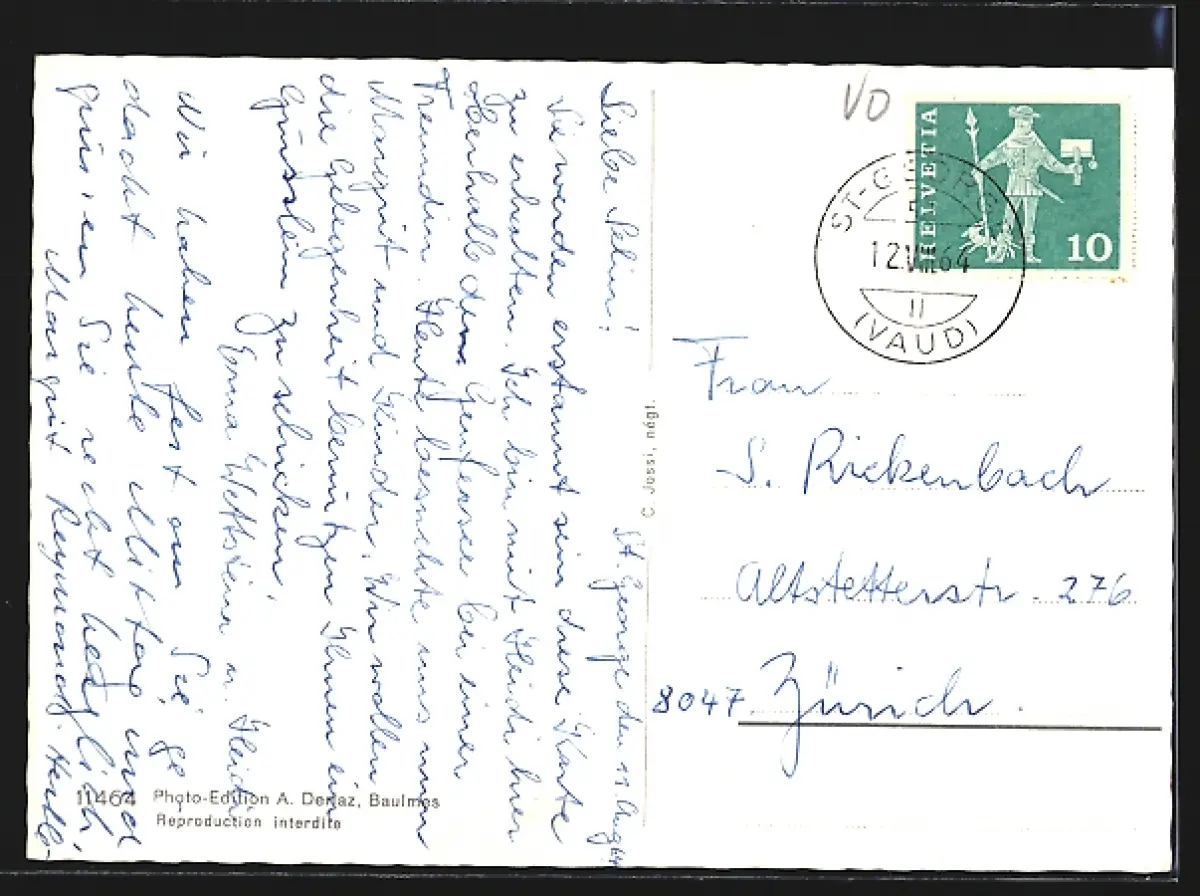 St. George den 11. Aug. 64
Liebe Selin!
Sie werden erstaunt sein diese Karte
zu erhalten. Ich bin mit Heidi hier
oberhalb dem Genfersee bei einer
Freundin. Heute besuchte uns nun
Margrit und Kinder. Wir wollen
die Gelegenheit benützen Ihnen ein
Grüsslein zu schicken.
Erna Wettstein u. Heidi
Wir haben fest an Sie ge
dacht heute Mittag und
grüssen Sie recht herzlich
Margrit Reymond
11464 Photo-Edition A. Deriaz, Baulmes
Reproduction interdite
C. Jossi, négt.
VD
HELVETIA
10
ST-GEORGE
12.VIII.64
11
(VAUD)
Frau
S. Rickenbach
Altstetterstr. 276
8047 Zürich.